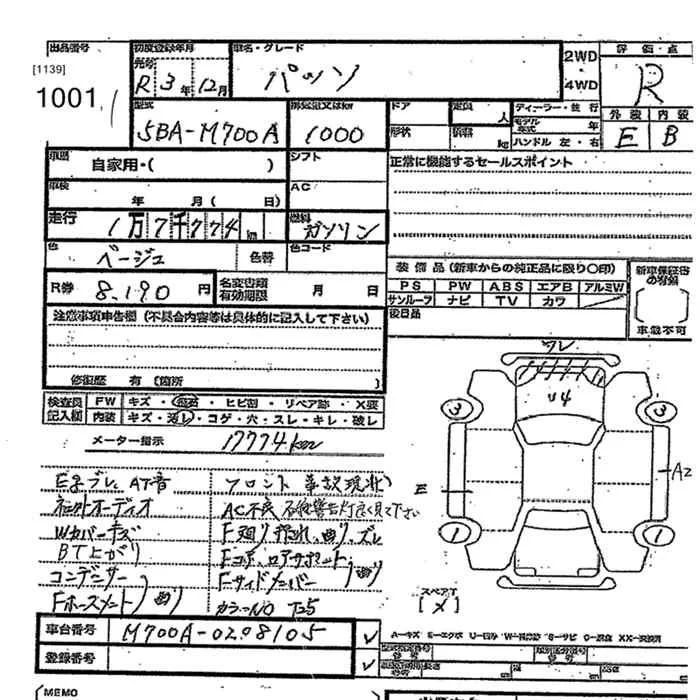 出品番号 初度登録年月 車名・グレード 2WD・4WD 評価点
[1139]
1001
R 3年 12月 パッソ R
型式 排気量又はkw ドア 定員 人 ディーラー・並行
5BA-M700A 1000 形状 積載 kg モデル年式 年
ハンドル 左・右
外装 内装
E B
車歴 自家用・( ) シフト
正常に機能するセールスポイント
車検 年 月( 日) AC
走行 1万7千774km 燃料 ガソリン
色 ベージュ 色替 色コード
装備品 (新車からの純正品に限り〇印)
新車保証書の有無
PS PW ABS エアB アルミW
サンルーフ ナビ TV カワ
R券 8,190円 名変書類有効期限 月 日
後日品
車載不可
注意事項申告欄 (不具合内容等は具体的に記入して下さい)
修復歴 有 (箇所 )
検査員記入欄 FW キズ・飛石・ヒビ割・リペア跡・X要
内装 キズ・汚レ・コゲ・穴・スレ・キレ・破レ
メーター指示 17774km
ズレ
U4
3 3
E A2
1 1
スペアT
[メ]
AT音 フロント 事故現状
社外オーディオ AC不良
Wカバーキズ F廻り 押され、曲り、ズレ
BT上がり Fコア、ロアサポート
コンデンサー Fサイドメンバー 曲り
Fホースメント 曲り カラーNO T25
車台番号 M700A-0208105
登録番号
A-キズ E-エクボ U-凹み
(MEMO